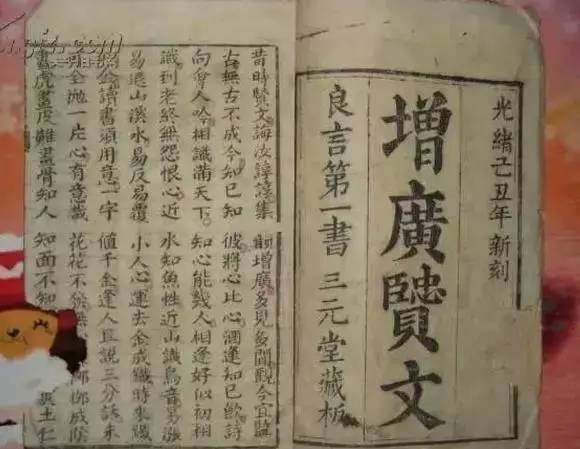 光緒己丑年新刻
增廣賢文
良言第一書 三元堂藏板
昔時賢文誨汝諄諄集韻增廣多見多聞觀今宜鑒
古無古不成今知己知彼將心比心酒逢知己飲詩
向會人吟相識滿天下知心能幾人相逢好似初相
識到老終無怨恨心近水知魚性近山識鳥音易漲
易退山溪水易反易覆小人心運去金成鐵時來鐵
似金讀書須用意一字值千金逢人且說三分話未
可全拋一片心有意栽花花不發無柳成陰
畫虎畫皮難畫骨知人知面不知土仁